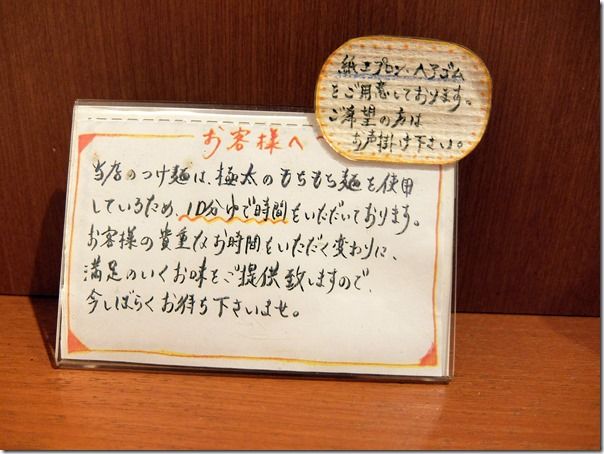 紙エプロン・ヘアゴム
をご用意しております。
ご希望の方は
お声掛け下さい。
お客様へ
当店のつけ麺は、極太のもちもち麺を使用
しているため、10分ゆで時間をいただいております。
お客様の貴重なお時間をいただく変わりに、
満足のいくお味をご提供致しますので、
今しばらくお待ち下さいませ。